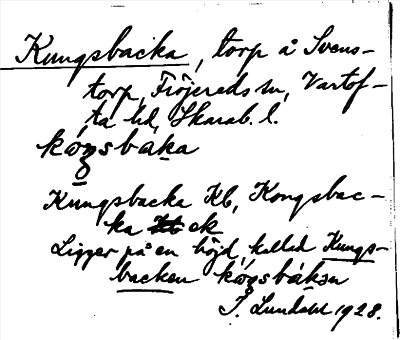 Kungsbacka, torp å Svens-
torp, Fröjereds sn, Vartof-
ta hd, Skarab. l.
koŋsbaka
Kungsbacka Kb, Kongsbac-
ka ek
Ligger på en höjd, kallad Kungs-
backen koŋsbakən
F. Lundahl 1928.